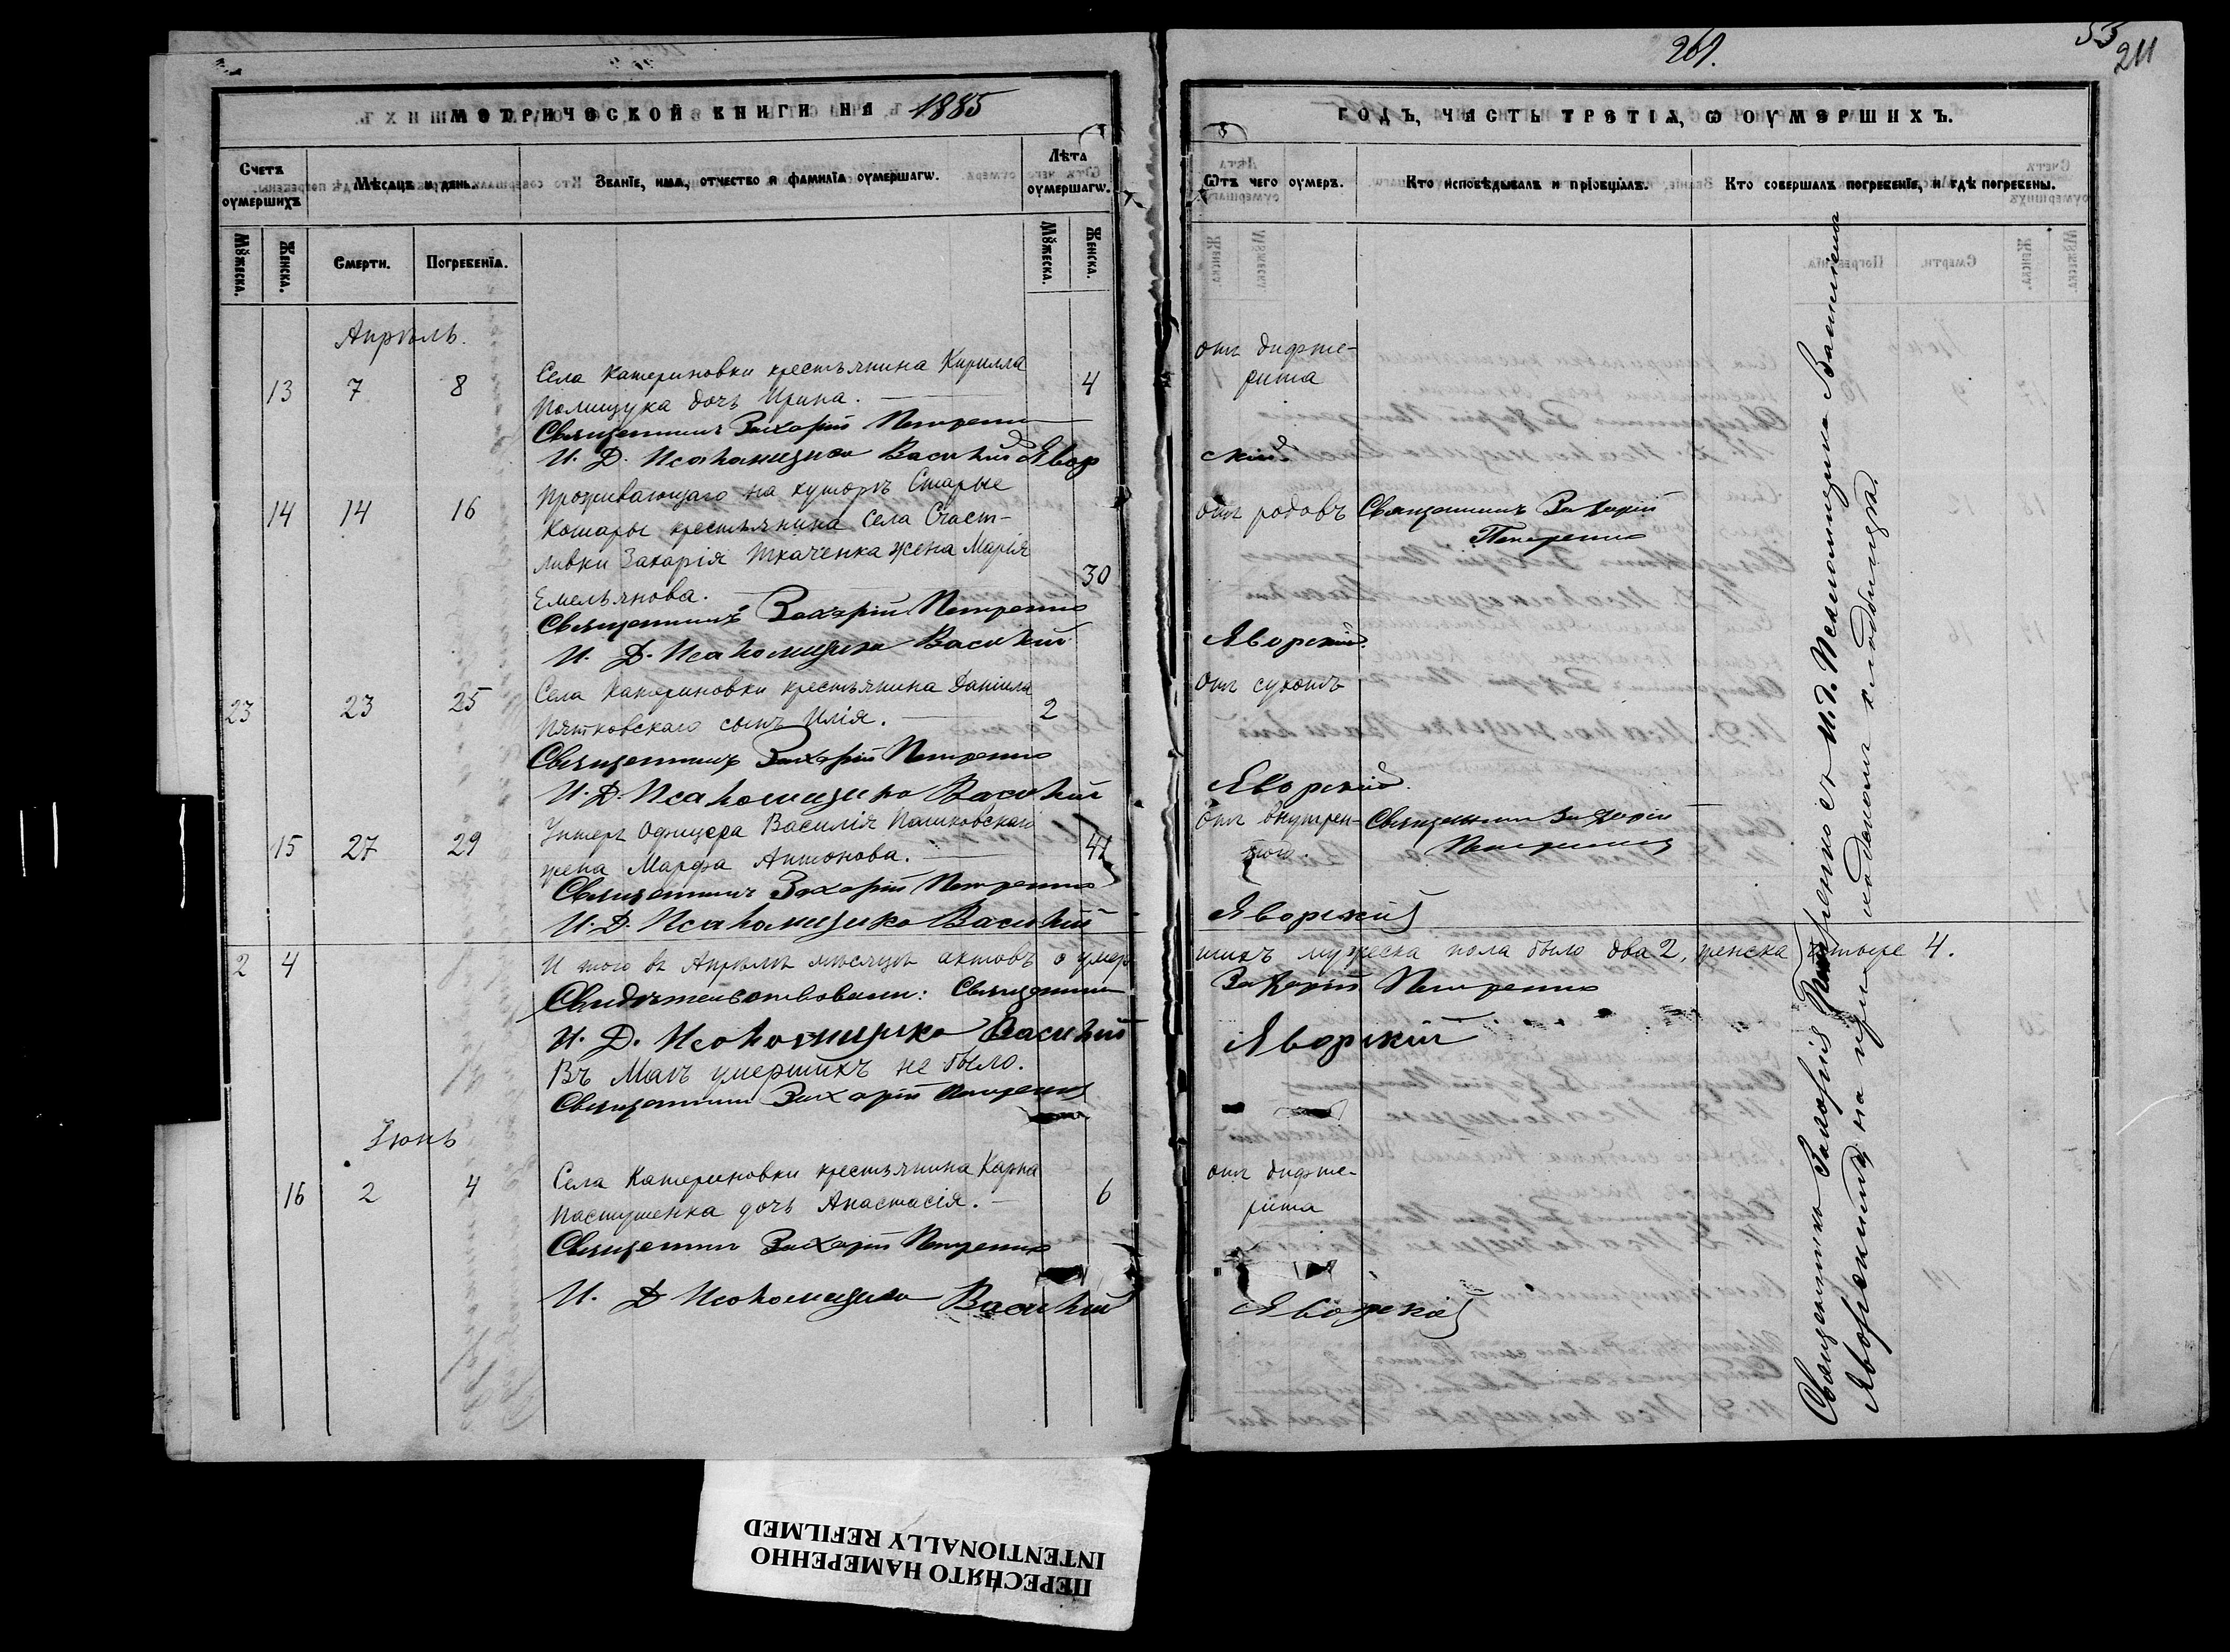 261.
53
211
МЕТРИЧЕСКОЙ КНИГИ НА 1885
ГОДЪ, ЧАСТЬ ТРЕТІѦ, Ѡ ОУМЕРШИХЪ.
Счетъ оумершихъ
Мѣсяцъ и день.
Званїе, имѧ, отчество и фамилїа оумершагѡ.
Лѣта оумершагѡ.
Ѿтъ чего оумеръ.
Кто исповѣдывалъ и прїобщалъ.
Кто совершалъ погребенїе, и гдѣ погребены.
Мꙋжеска.
Женска.
Смерти.
Погребенїѧ.
Мꙋжеска.
Женска.
Апрѣль.
13 7 8 Села Катериновки крестьянина Кирилла 4 отъ дифте-
Полищука дочь Ирина. рита
Священникъ Захарій Петренко
И. Д. Псаломщика Василій Явор ский
14 14 16 Проживающаго на хуторѣ Старые отъ родовъ Священникъ Захарій
Кошары крестьянина села Счаст- Петренко
ливки Захарія Ткаченка жена Марія 30
Емельянова.
Священникъ Захарій Петренко
И. Д. Псаломщика Василій Яворскій.
23 23 25 Села Катериновки крестьянина Даніила отъ сухотъ
Пятковскаго сынъ Илія. 2
Священникъ Захарій Петренко
И. Д. Псаломщика Василій Яворскій.
15 27 29 Унтеръ Офицера Василія Пашковскаго 41 отъ внутрен- Священникъ Захарій
жена Марфа Антонова. Петренко
Священникъ Захарій Петренко
И. Д. Псаломщика Василій Яворскій
2 4 И того въ Апрѣлѣ мѣсяцѣ актовъ о умер- шихъ мужеска пола было два 2, женска четыре 4.
Свидѣтельствовали: Священникъ Захарій Петренко
И. Д. Псаломщика Василій Яворскій
Въ Маѣ умершихъ не было.
Священникъ Захарій Петренко
Іюнь
16 2 4 Села Катериновки крестьянина Карпа 6 отъ дифте-
Пастушенка дочь Анастасія. рита
Священникъ Захарій Петренко
И. Д Псаломщика Василій Яворскій
Священникъ Захарій Петренко съ И. д. Псаломщика Василіемъ
Яворскимъ на приходскомъ кладбищѣ.
ПЕРЕСНЯТО НАМЕРЕННО
INTENTIONALLY REFILMED